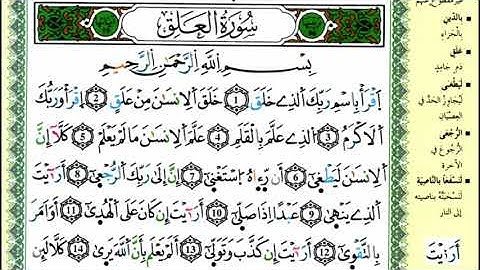 سُورَةُ الْعَلَقِ
بِسْمِ اِللَّهِ اِلرَّحْمَٰنِ اِلرَّحِيمِ
اِقْرَأْ بِاسْمِ رَبِّكَ اَلذِے خَلَقَ 1 خَلَقَ اَلِانسَٰنَ مِنْ عَلَقٍ 2 اِقْرَأْ وَرَبُّكَ
اَلَاكْرَمُ 3 اُلذِے عَلَّمَ بِالْقَلَمِ 4 عَلَّمَ اَلِانسَٰنَ مَا لَمْ يَعْلَمْ 5 كَلَّا إِنَّ
اَلِانسَٰنَ لَيَطْغَىٰ 6 أَن رَّءَاهُ اُسْتَغْنَىٰ 7 إِنَّ إِلَىٰ رَبِّكَ اَلرُّجْعَىٰ 8 أَرَٰٓيْتَ
اَلذِے يَنْهَىٰ 9 عَبْداً اِذَا صَلَّىٰ 10 أَرَٰٓيْتَ إِن كَانَ عَلَى اَلْهُدَىٰ 11 أَوَ اَمَرَ
بِالتَّقْوَىٰ 12 أَرَٰٓيْتَ إِن كَذَّبَ وَتَوَلَّىٰ 13 أَلَمْ يَعْلَم بِأَنَّ اَللَّهَ يَرَىٰ 14 كَلَّا لَئِن
بِالدِّينِ
بالجزاء
عَلَقٍ
دم جامد
لَيَطْغَىٰ
ليجاوز الحد في
العصيان
الرُّجْعَىٰ
الرجوع في
الآخرة
لَنَسْفَعاً بِالنَّاصِيَةِ
لنسحبنه بناصيته
إلى النار
أَرَٰٓيْتَ